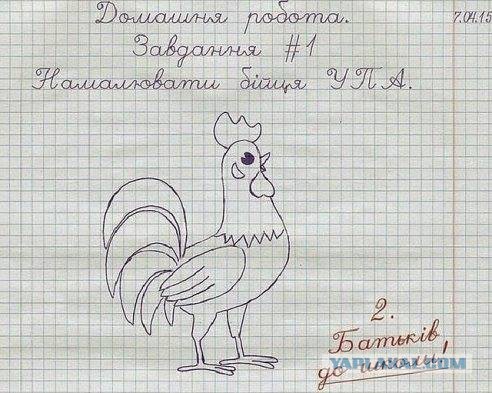 Домашня робота.
7.04.15
Завдання #1
Намалювати бійця УПА.
2.
Батьків
до школи!
YAPLAKAL.COM